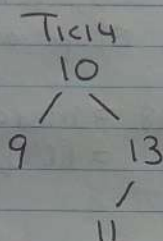 Tick4
10
9 13
11